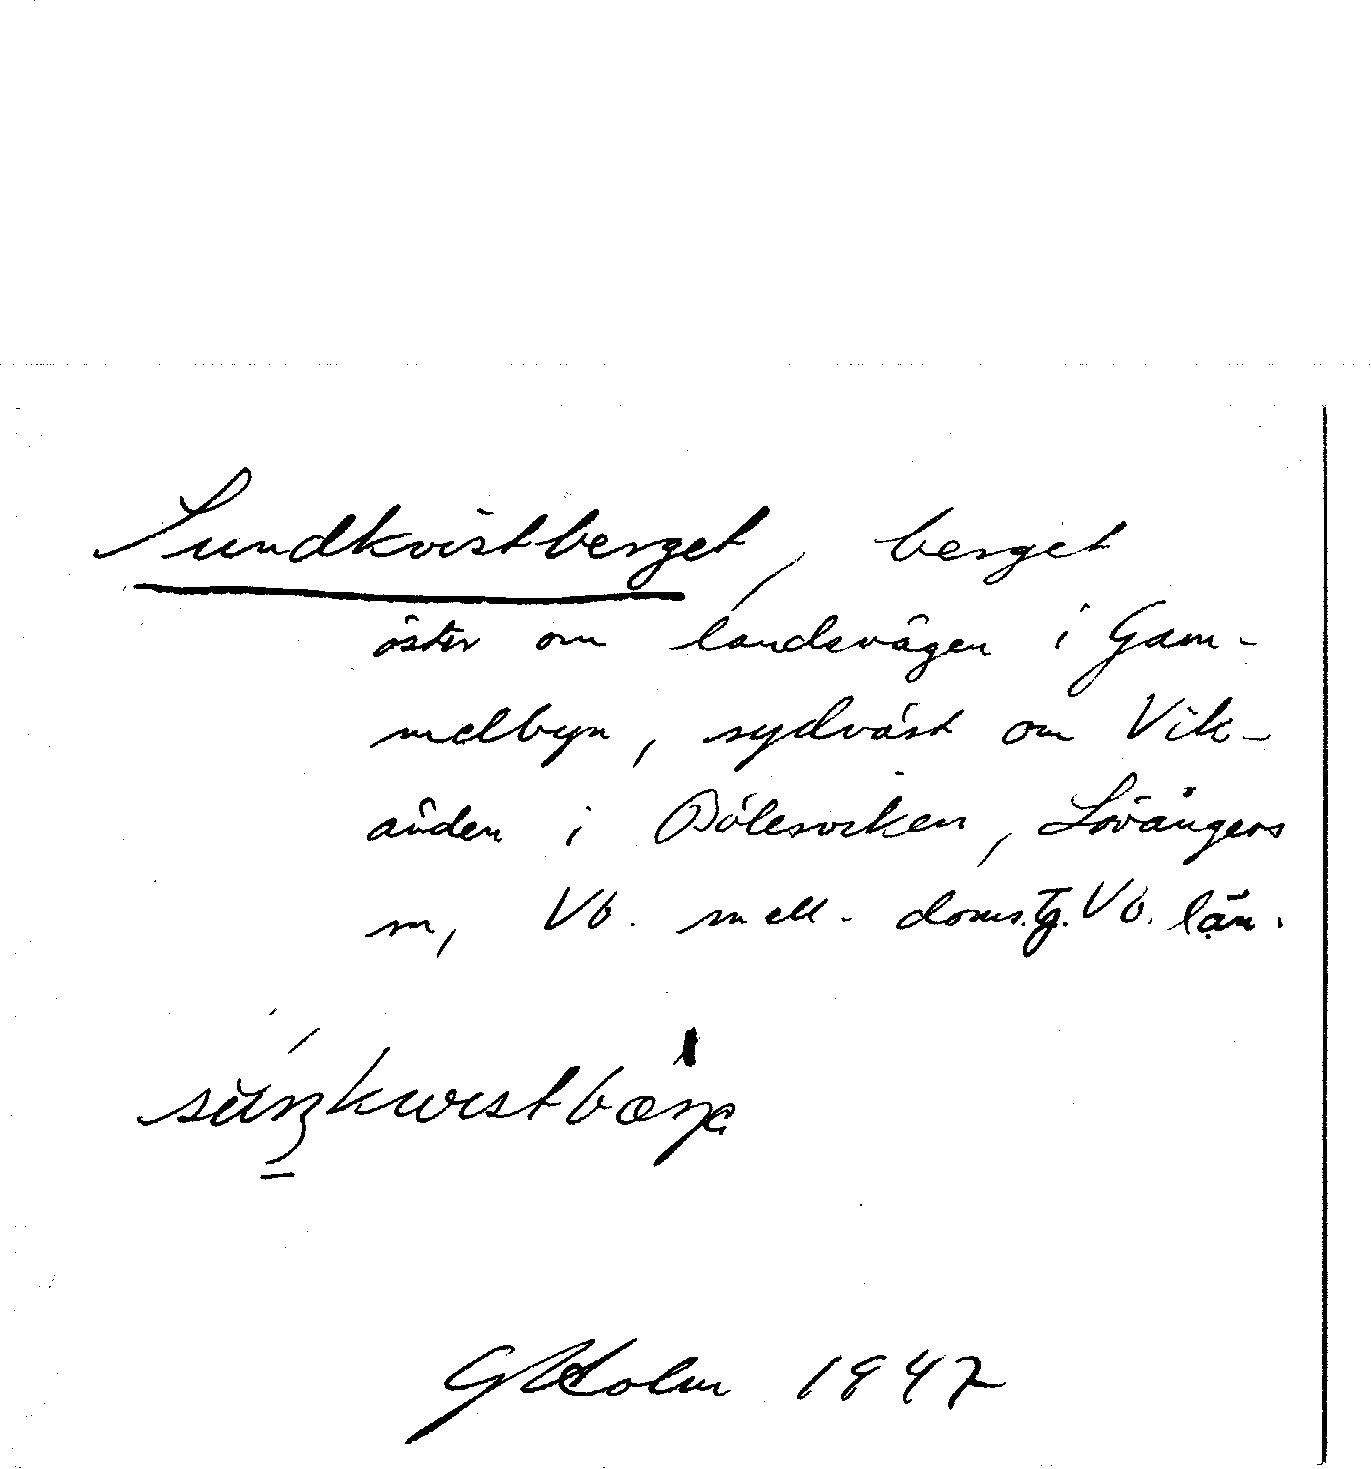 Sundkvistberget, berget
öster om landsvägen i Gam-
melbyn, sydväst om Vik-
änden i Bölesviken, Lövångers
sn, Vb. mell. doms.tg. Vb. län.
G Holm 1947